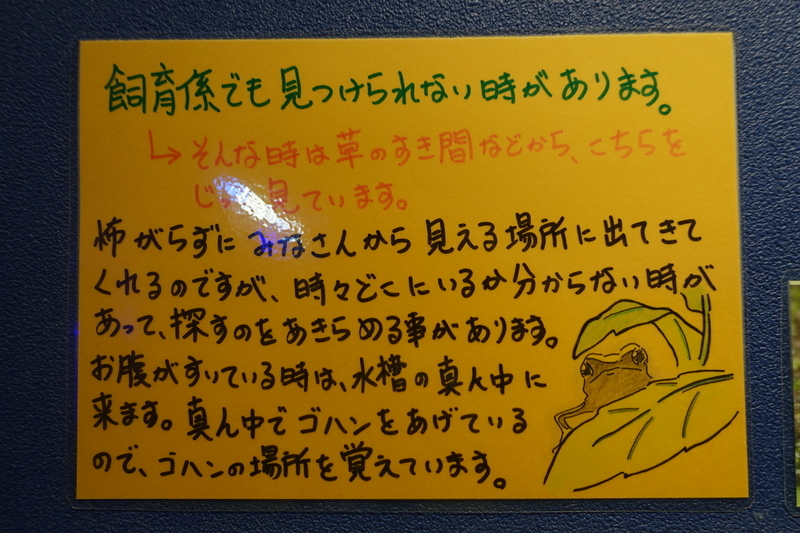 飼育係でも見つけられない時があります。
そんな時は草のすき間などから、こちらを
じ 見ています。
怖がらずにみなさんから見える場所に出てきて
くれるのですが、時々どこにいるか分からない時が
あって、探すのをあきらめる事があります。
お腹がすいている時は、水槽の真ん中に
来ます。真ん中でゴハンをあげている
ので、ゴハンの場所を覚えています。